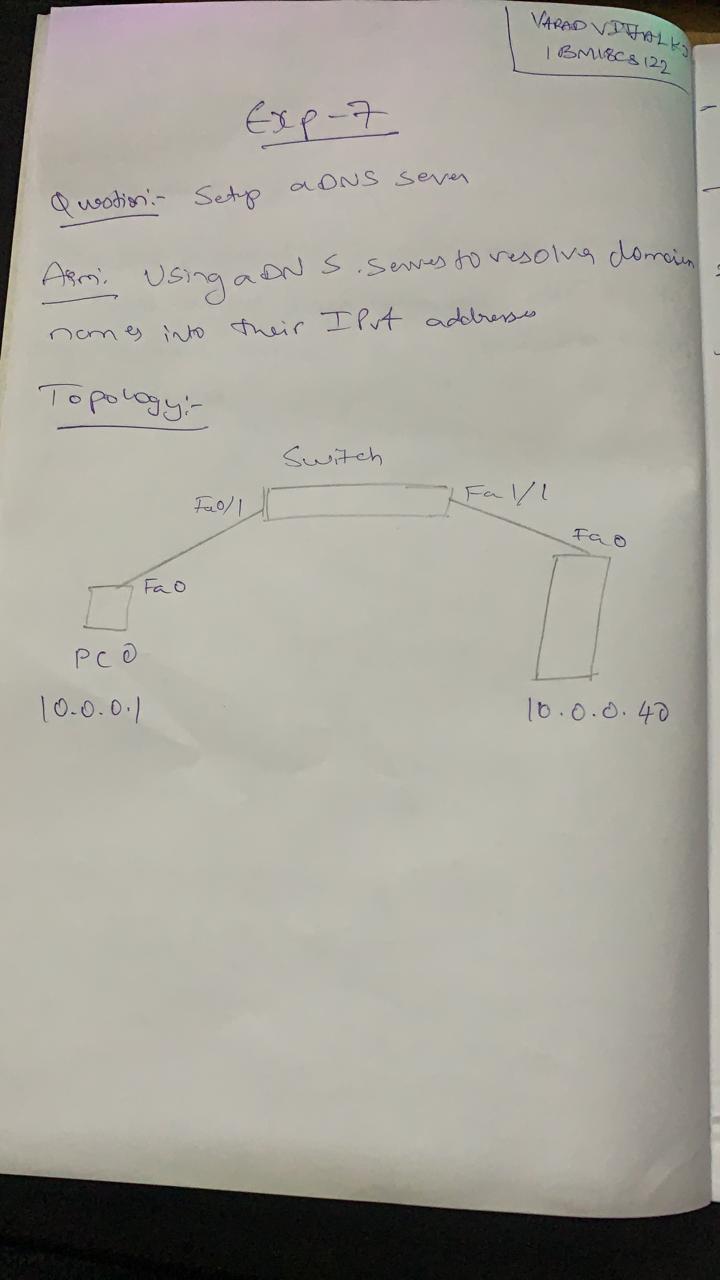 VARAD VITHALKJ
1BM18CS122
Exp-7
Question:- Setup a DNS sever
Aim: Using a DNS server to resolve domain
names into their IPv4 addresses
Topology:-
Switch
Fa0/1
Fa1/1
Fa0
Fa0
PC0
10.0.0.1
10.0.0.40